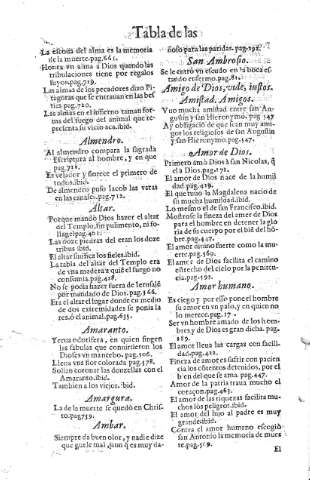 Tabla de las
La escoria del alma es la memoria
de la muerte.pag.661.
Honra vn alma a Dios quando las
tribulaciones tiene por regalos
suyos.pag.719.
Las almas de los pecadores dixo Pi-
tagoras que se entrauan en las bes-
tias.pag.720.
Las almas en el infierno toman for-
ma del fuego del animal que re-
presenta su vicio aca.ibid.
Almendro.
Al almendro compara la sagrada
Escriptura al hombre, y en que
pag.726.
Es velador y florece el primero de
todos.ibid.
De almendro puso Iacob las varas
en las canales.pag.712.
Altar.
Porque mandò Dios hazer el altar
del Templo, sin pulimento, ni fo-
llage?
Las doze piedras del eran los doze
tribus ibid.
El altar significa los fieles.ibid.
La tabla del altar del Templo era
de vna madera que el fuego no
consumia.pag.428.
No se podia hazer fuera de Ierusalẽ
por mandado de Dios.pag.566.
Era el altar el lugar donde en medio
de dos estremidades se ponia la
res,o el animal.pag.635.
Amaranto.
Yerua odorifera, en quien fingen
las fabulas que conuirtieron los
Dioses vn mancebo.pag.106.
Lleua vna flor colorada.pag.578.
Solian coronar las donzellas con el
Amaranto.ibid.
Tambien a los viejos.ibid.
Amargura.
La de la muerte se quedò en Chris-
to.pag.759.
Ambar.
Siempre da buen olor, y nadie dize
que guele mal, aun q̃ es muy da-
ñoso para las paridas.pag.192.
San Ambrosio.
Se le entrò vn escudo en la boca es-
tando enfermo.pag.82.
Amigo de Dios, vide, iustos.
Amistad. Amigos.
Vuo mucha amistad entre san Au-
gustin y san Hieronymo.pag.547
Ay obligaciõ de que seã muy ami-
gos los religiosos de san Augustin
y san Hieronymo.pag.547.
Amor de Dios.
Primero amò Dios à san Nicolas, q̃
el a Dios.pag.271.
El amor de Dios nace de la humil
dad pag.419.
El que tuuo la Magdalena nacio de
su mucha humildad.ibid.
Lo mesmo el de san Francisco.ibid.
Mostrose la fineza del amor de Dios
para el hombre en detener la glo-
ria de su cuerpo por el biẽ del hõ-
bre.pag.447.
El amor diuino fuerte como la mu-
erte.pag.560.
El amor de Dios facilita el camino
estrecho del cielo por la peniten-
cia.pag.192.
Amor humano.
Es ciego y por esso pone el hombre
su amor en vn palo, y en quien no
lo merece.pag.17.
Ser vn hombre amado de los hom-
bres y de Dios es gran dicha.pag.
289.
El amor lleua las cargas con facili-
dad.pag.422.
Fineza de amor es sufrir con pacien
cia los contentos detenidos, por el
bien del que se ama.pag.447.
Amor de la patria traua mucho el
coraçon.pag.463.
El amor de las riquezas facilita mu-
chos los peligros.ibid.
El amor del hijo al padre es muy
grande.ibid.
Contra el amor humano escogiò
san Antonio la memoria de muer
te.pag.569.
El